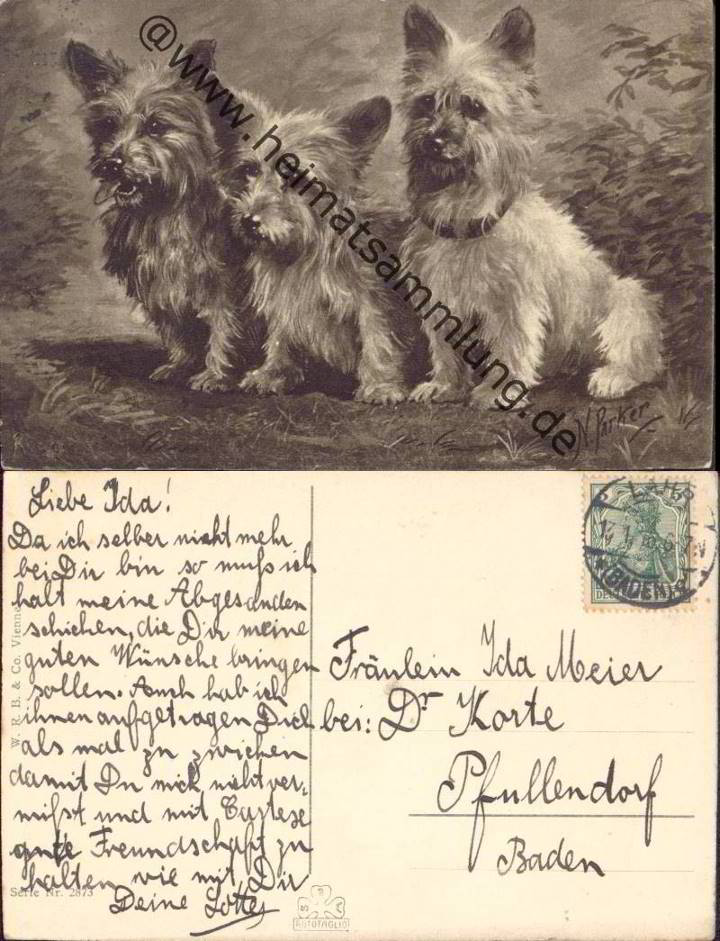 @www.heimatsammlung.de
N. Parker
Liebe Ida!
Da ich selber nicht mehr
bei Dir bin so muß ich
halt meine Abgesanden
schicken, die Dir meine
guten Wünsche bringen
sollen. Auch hab ich
ihnen aufgetragen Dich
als mal zu zwicken
damit Du mich nicht ver-
mißt und mit
gute Freundschaft zu
halten wie mit Dir
Deine Lotte
W. R. B. & Co. Vienne
Serie Nr. 2873
AUTOTAGLIO
BADEN
Fräulein Ida Meier
bei: Dr Korte
Pfullendorf
Baden